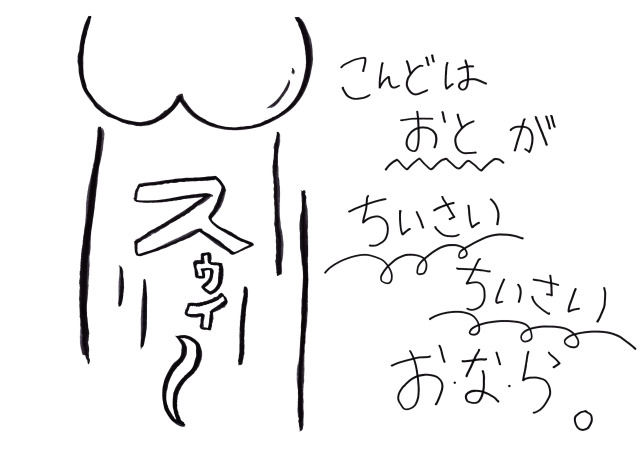 こんどは
おとが
ちいさい
ちいさい
お・な・ら。
スゥイ